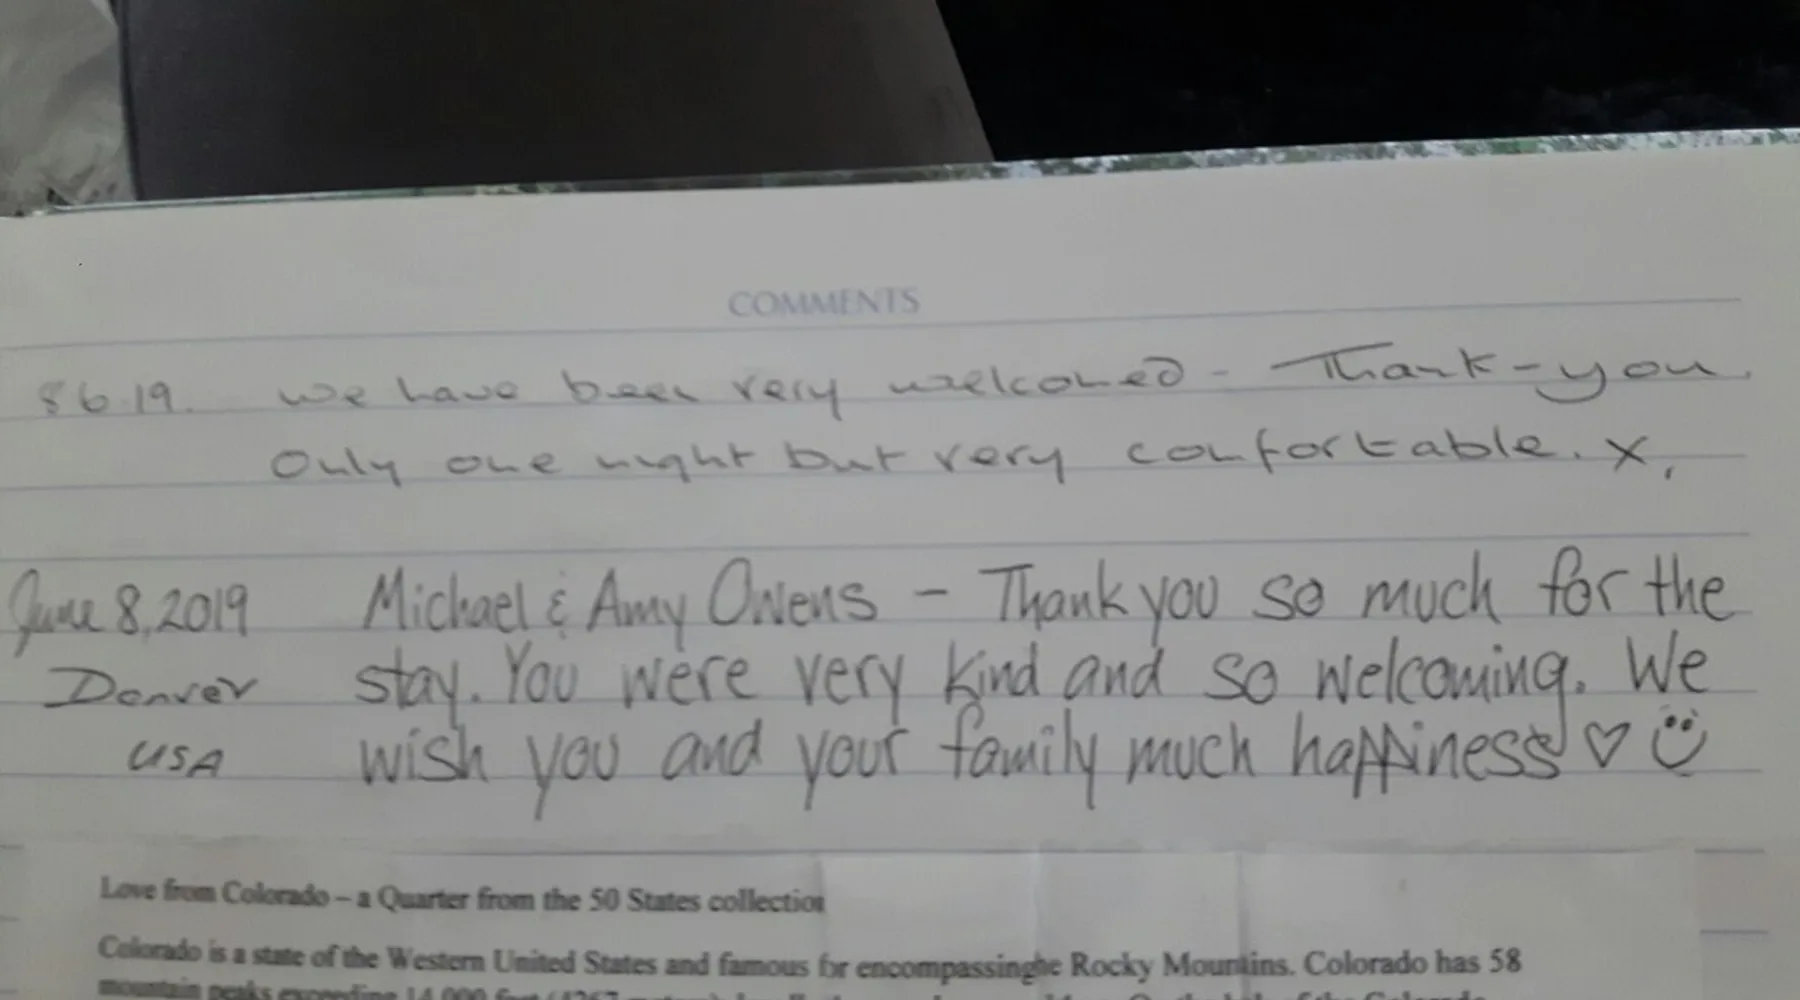 COMMENTS
8 6 19. We have been very welcomed - Thank-you.
Only one night but very comfortable. x.
June 8, 2019 Michael & Amy Owens - Thank you so much for the
Denver stay. You were very kind and so welcoming. We
USA wish you and your family much happiness ♡ ☺
Love from Colorado – a Quarter from the 50 States collection
Colorado is a state of the Western United States and famous for encompassing he Rocky Mountins. Colorado has 58
mountain peaks exceeding 14,000 feet (4267